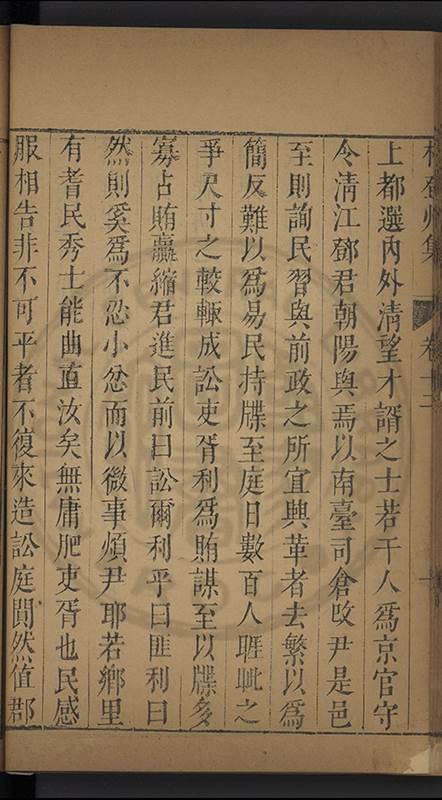 集 卷十二
上都選內外清望才諝之士若干人為京官守
令清江鄧君朝陽與焉以南臺司倉改尹是邑
至則詢民習與前政之所宜興革者去繁以為
簡反難以為易民持牒至庭日數百人睚眦之
爭尺寸之較輒成訟吏胥利為賄謀至以牒多
寡占賄贏縮君進民前曰訟爾利乎曰匪利曰
然則奚為不忍小忿而以微事煩尹耶若鄉里
有耆民秀士能曲直汝矣無庸肥吏胥也民感
服相告非不可平者不復來造訟庭閴然值郡